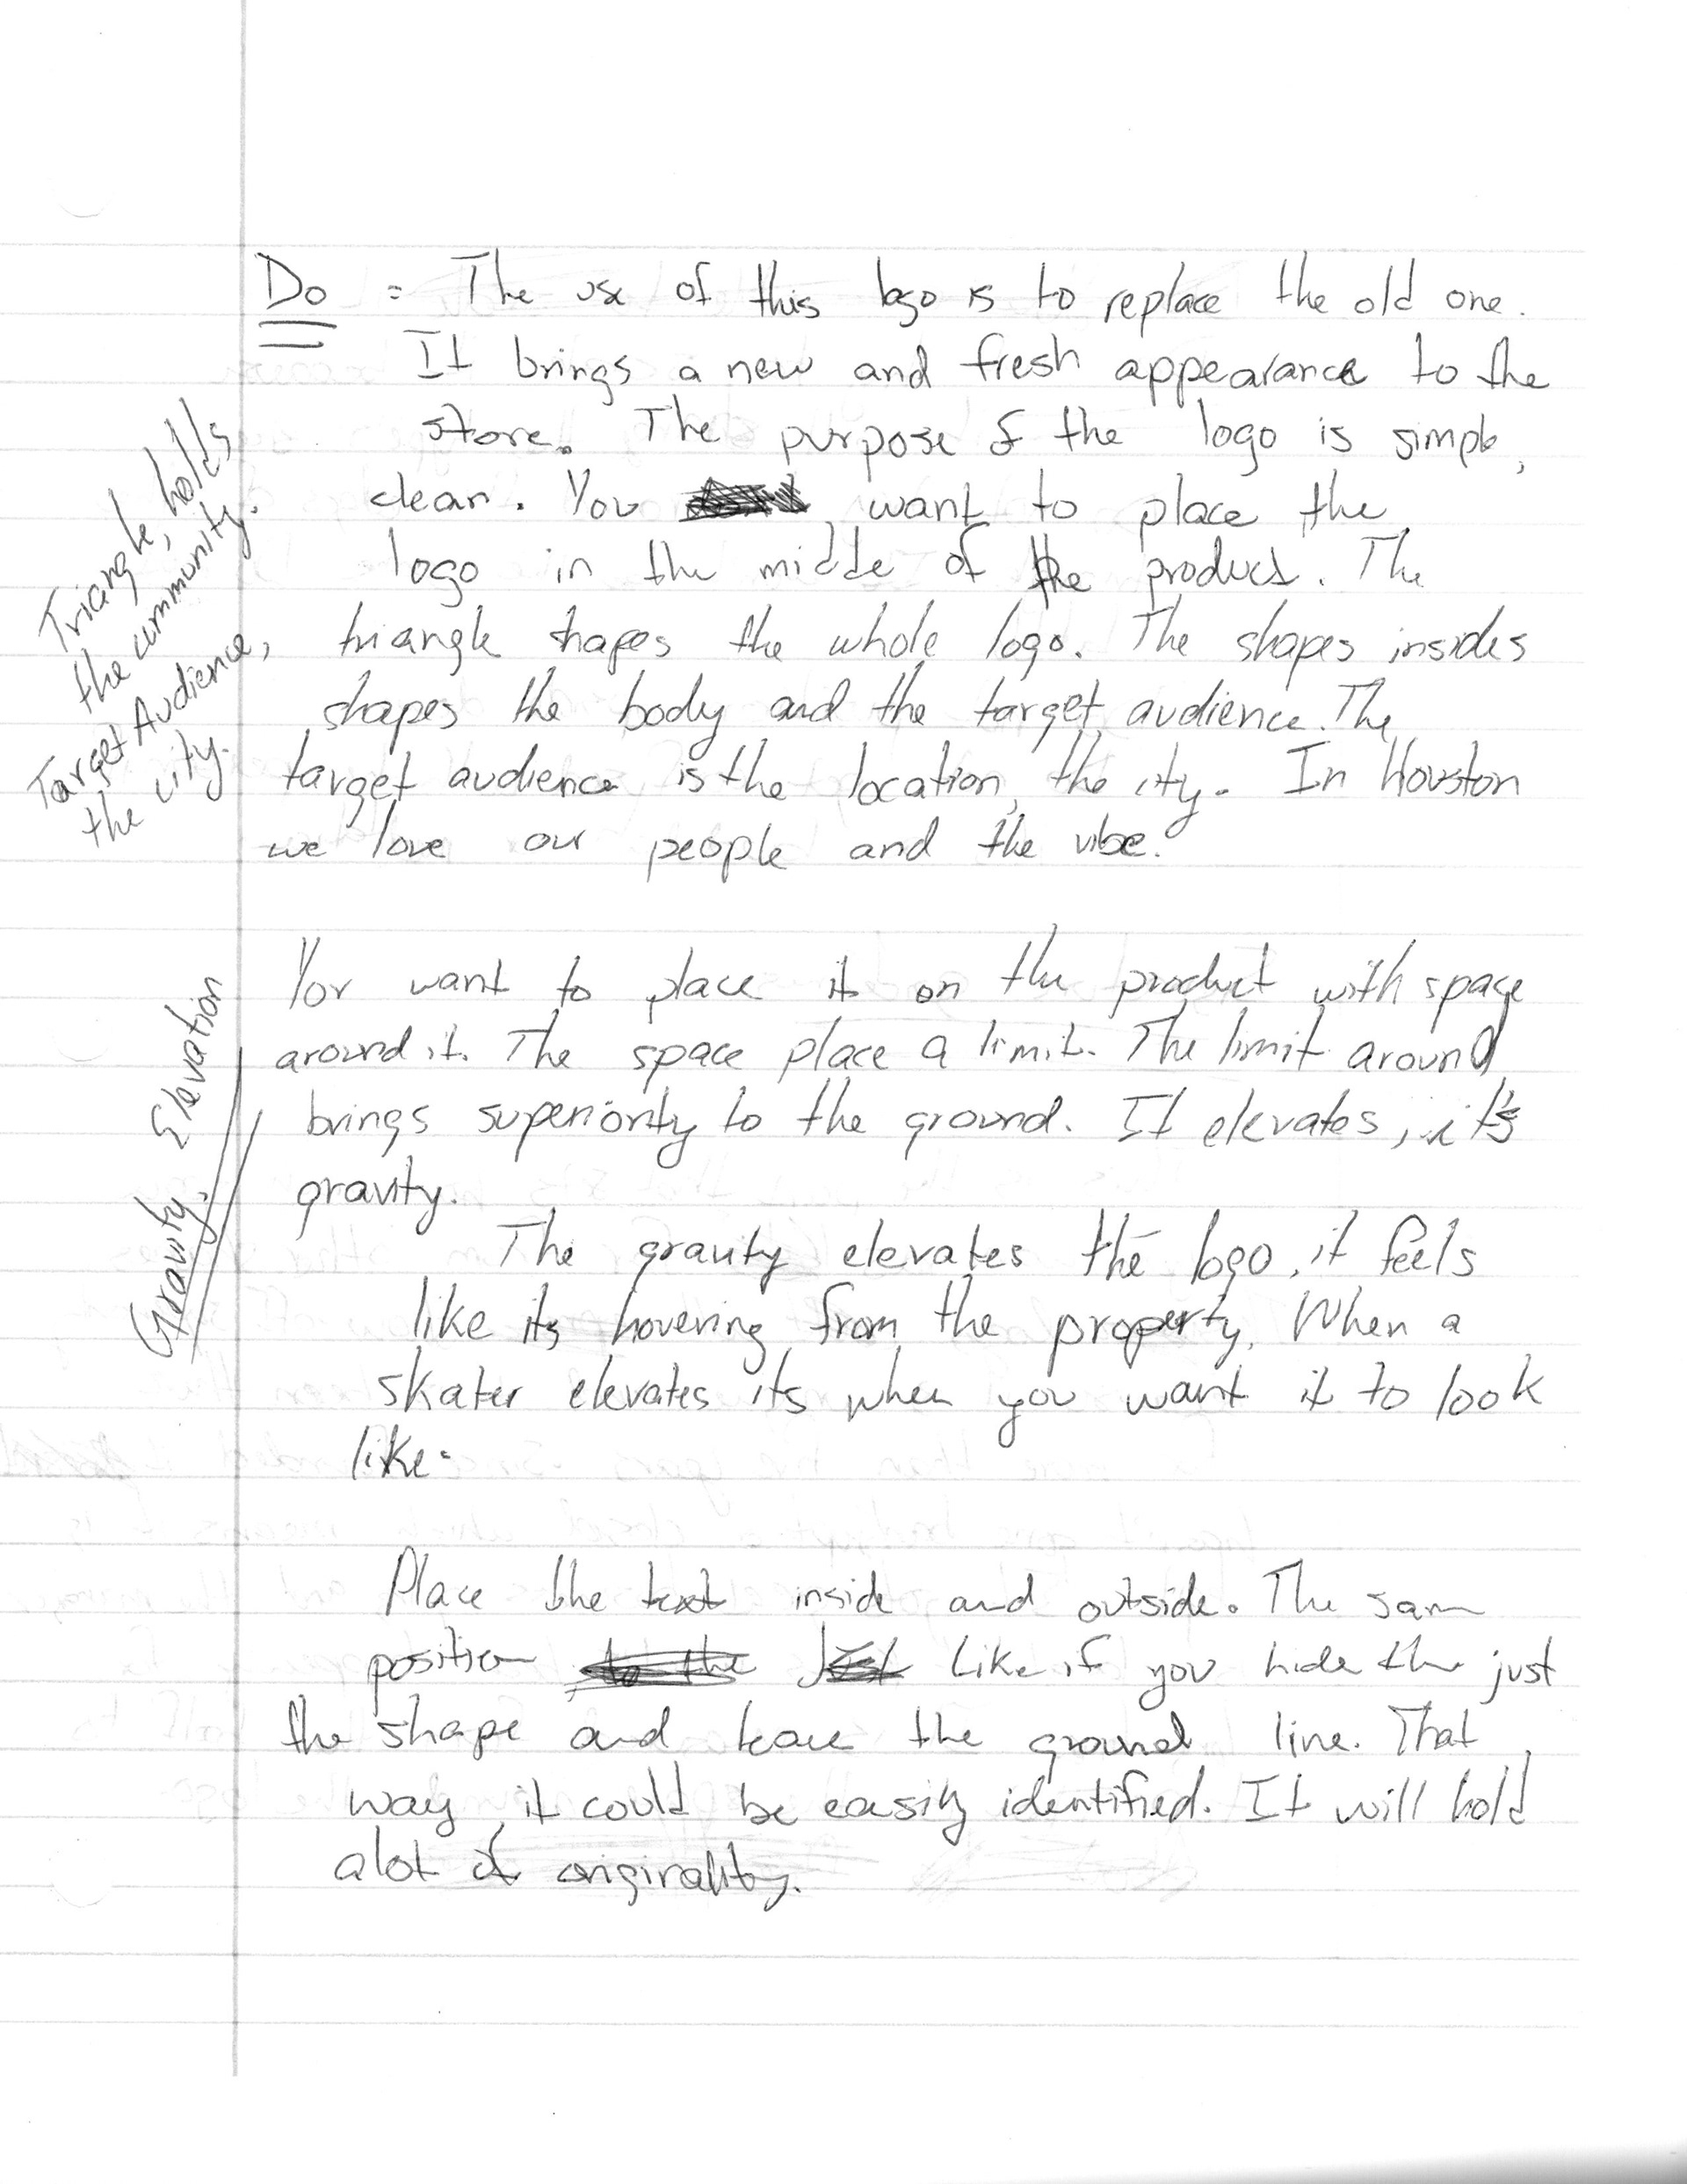 Do = The use of this logo is to replace the old one.
It brings a new and fresh appearance to the
store. The purpose of the logo is simple,
clean. You want to place the
logo in the middle of the product. The
triangle shapes the whole logo. The shapes insides
shapes the body and the target audience. The
target audience is the location, the city. In Houston
we love our people and the vibe.
Triangle, holds
the community.
Target Audience,
the city.
You want to place it on the product with space
around it. The space place a limit. The limit around
brings superiority to the ground. It elevates, it's
gravity.
Gravity. Elevation
The gravity elevates the logo, it feels
like its hovering from the property. When a
skater elevates its when you want it to look
like.
Place the text inside and outside. The same
position Like if you hide the just
the shape and leave the ground line. That
way it could be easily identified. It will hold
alot of originality.